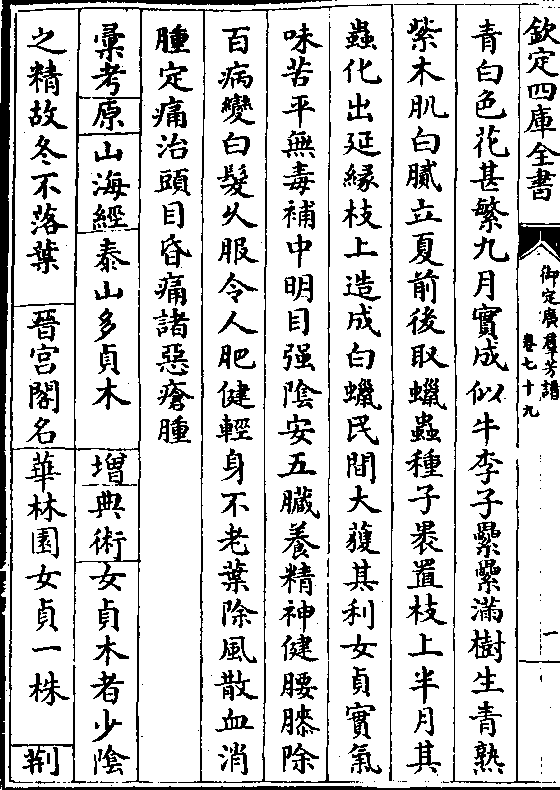 欽定四庫全書
御定廣羣芳譜
卷七十九
一
青白色花甚繁九月實成似牛李子纍纍滿樹生青熟
紫木肌白膩立夏前後取蠟蟲種子裹置枝上半月其
蟲化出延緣枝上造成白蠟民間大獲其利女貞實氣
味苦平無毒補中明目强陰安五臟養精神健腰膝除
百病變白髮乆服令人肥健輕身不老葉除風散血消
腫定痛治頭目昏痛諸惡瘡腫
彚考原山海經泰山多貞木 增典術女貞木者少陰
之精故冬不落葉 晉宫閣名華林園女貞一株 荆